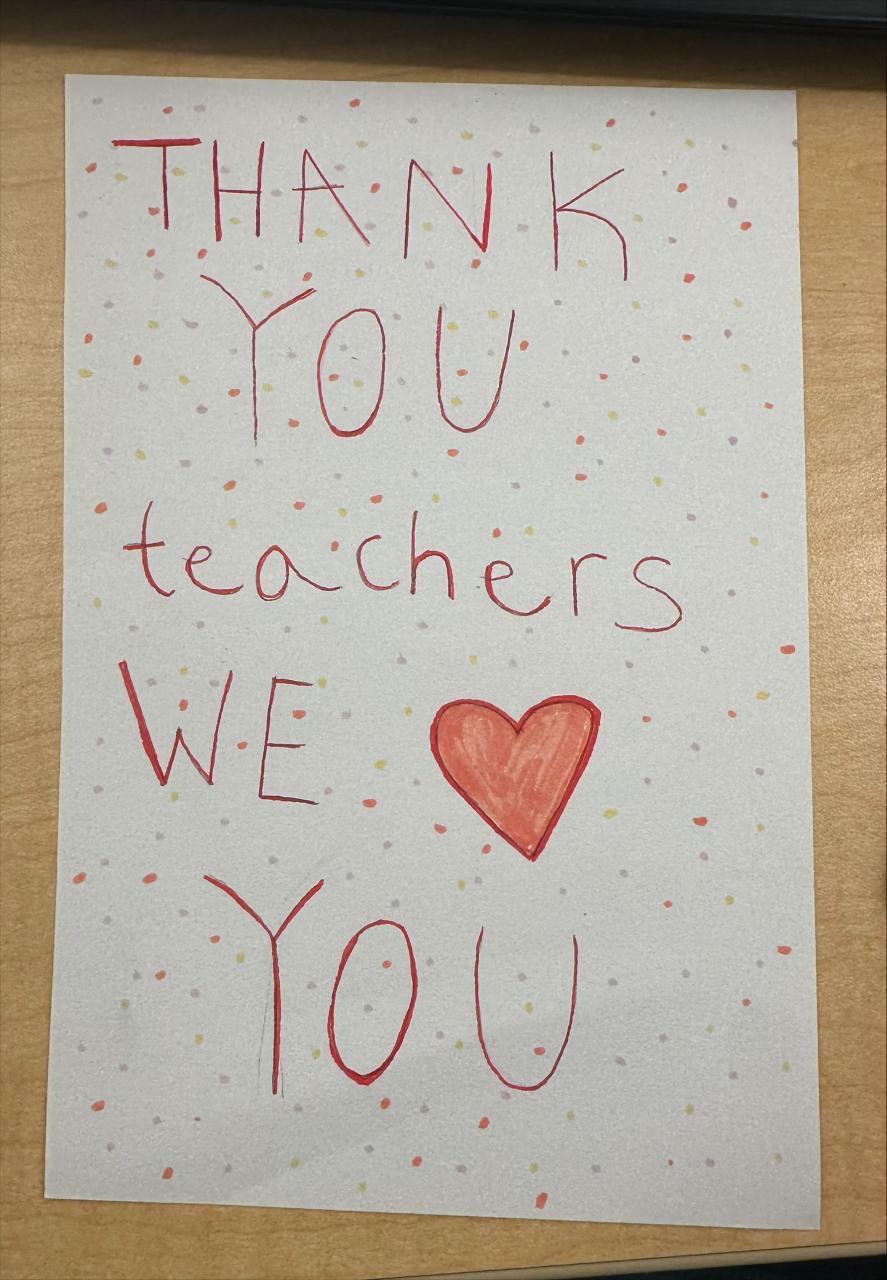 THANK
YOU
teachers
WE ❤
YOU